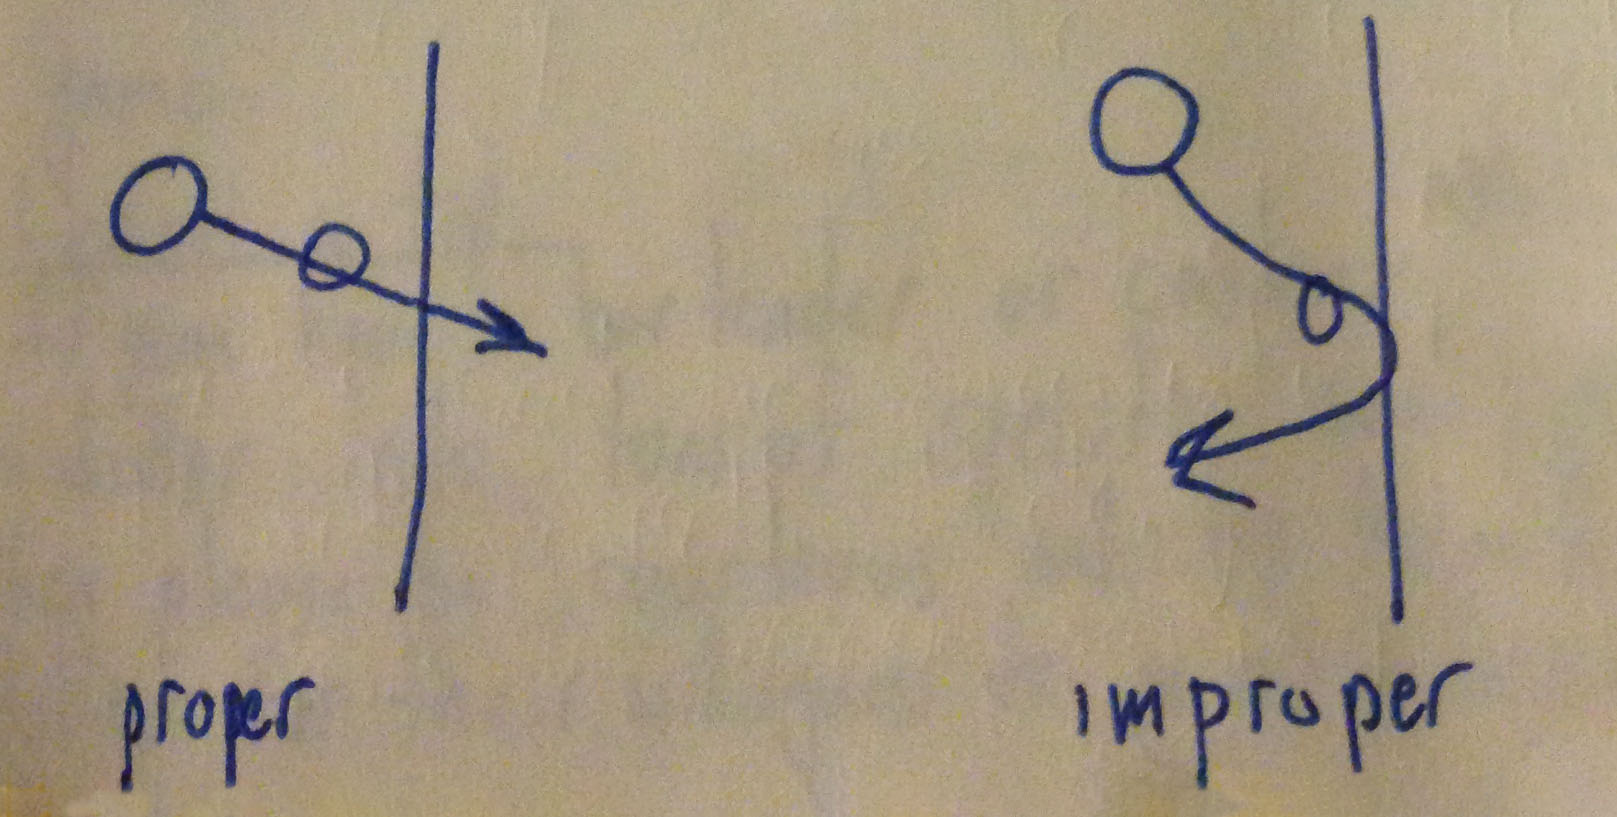 proper
improper